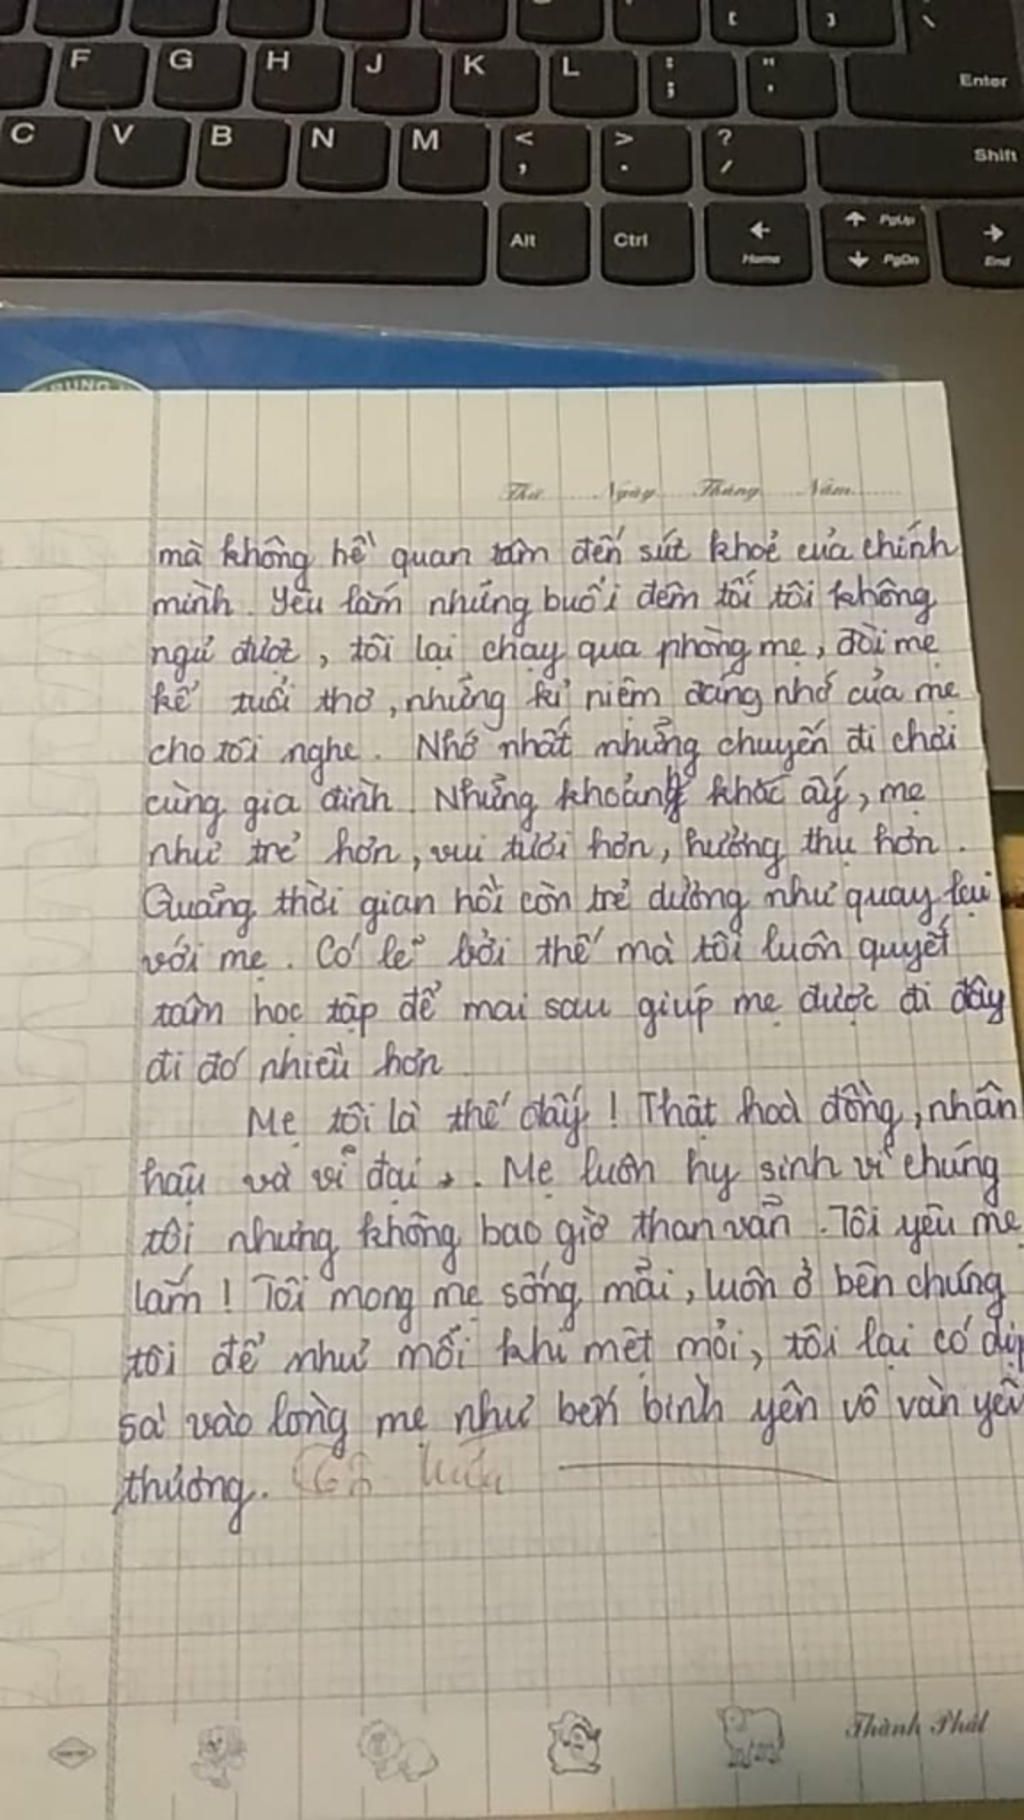 [ ]
\
F G H J K L : ; " ' Enter
C V B N M < , > . ? / Shift
Alt Ctrl Home PgUp PgDn End
Thứ Ngày Tháng Năm
mà không hề quan tâm đến sứt khoẻ của chính
mình. Yêu lắm những buổi đêm tối tôi không
ngủ được, tôi lại chạy qua phòng mẹ, đòi mẹ
kể tuổi thơ, những kỉ niệm đáng nhớ của mẹ
cho tôi nghe. Nhớ nhất những chuyến đi chơi
cùng gia đình. Những khoảng khắc ấy, mẹ
như trẻ hơn, vui tươi hơn, hưởng thụ hơn.
Quảng thời gian hồi còn trẻ dường như quay lại
với mẹ. Có lẽ bởi thế mà tôi luôn quyết
tâm học tập để mai sau giúp mẹ được đi đây
đi đó nhiều hơn
Mẹ tôi là thế đấy! Thật hoà đồng, nhân
hậu và vĩ đại. Mẹ luôn hy sinh vì chúng
tôi nhưng không bao giờ than vãn. Tôi yêu mẹ
lắm! Tôi mong mẹ sống mãi, luôn ở bên chúng
tôi để như mỗi khi mệt mỏi, tôi lại có dịp
sà vào lòng mẹ như bến bình yên vô vàn yêu
thương.
Thành Phát